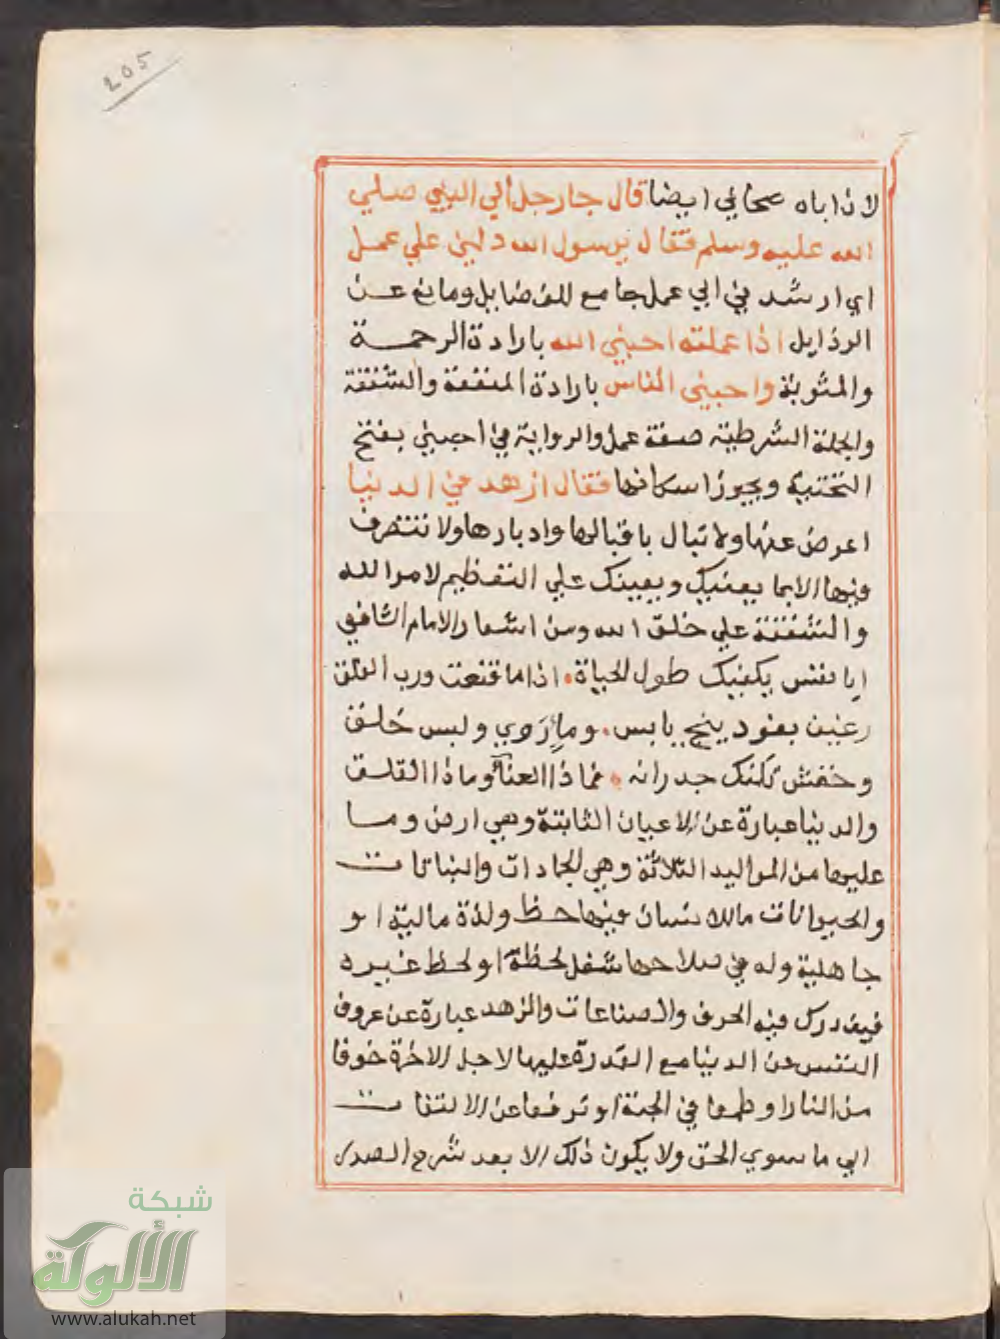 205
لان اباه صحابي ايضا قال جا رجل الي النبي صلي
الله عليه وسلم فقال يرسول الله دلني علي عمل
اي ارشدني الي عمل جامع للفضايل ومانع عن
الرذايل اذا عملته احبني الله بارادة الرحمة
والمثوبة واحبني الناس بارادة المنفعة والشفقة
والجملة الشرطية صفة عمل والرواية في احبني بفتح
التحتية ويجوز اسكانها فقال ازهد في الدنيا
اعرض عنها ولا تبال باقبالها وادبارها ولا تتصرف
فيها الا بما يعنيك ويعينك علي التعظيم لامر الله
والشفقة علي خلق الله ومن اشعار الامام الشافعي
ايا نفس يكفيك طول الحياة اذا ما قنعت ورب الفلق
رغيف بفودينج يابس وما روي ولبس خلق
وخفش تكنك جدرانه فماذا العنا وماذا القلق
والدنيا عبارة عن الاعيان الثابتة وهي ارض وما
عليها من المواليد الثلاثة وهي الجمادات والنباتات
والحيوانات مالانسان فيها حظ ولذة مالية او
جاهلية وله في صلاحها شغل لحظة او لحظ غيره
فيندرك فيه الحرف والصناعات والزهد عبارة عن عزوف
النفس عن الدنيا مع القدرة عليها لاجل الاخرة خوفا
من النار او طمعا في الجنة او ترفعا عن الالتفات
الي ما سوي الحق ولا يكون ذلك الا بعد شرح الصدر
شبكة
الألوكة
www.alukah.net